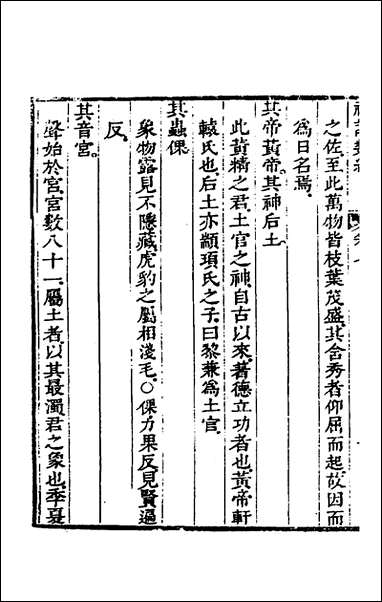 之佐至此萬物皆枝葉茂盛其含秀者仰屈而起故因而
為日名焉
其帝黃帝其神后土
此黃精之君土官之神自古以來著德立功者也黃帝軒
轅氏也后土亦顓頊氏之子曰黎兼為土官
其蟲倮
象物露見不隱藏虎豹之屬相淺毛○倮力果反見賢遍
反
其音宮
聲始於宮宮數八十一屬土者以其最濁君之象也季夏